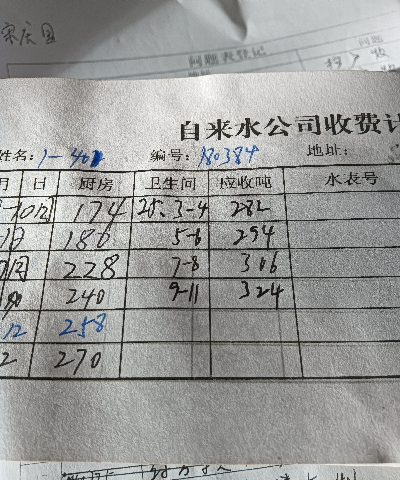 宋庆国
问题表登记
问题
自来水公司收费计
姓名: 1-401 编号: 180384 地址:
月 日 厨房 卫生间 应收吨 水表号
174 25.3-4 282
186 5-6 294
228 7-8 306
240 9-11 324
12 258
2 270